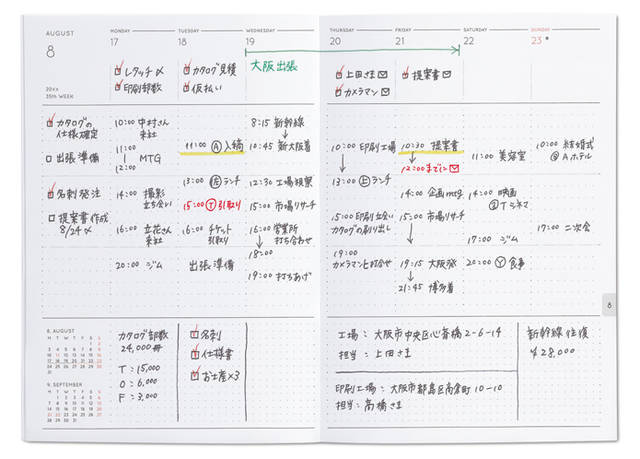 AUGUST
8
20XX
35th WEEK
MONDAY
17
TUESDAY
18
WEDNESDAY
19
THURSDAY
20
FRIDAY
21
SATURDAY
22
SUNDAY
23
大阪出張
レタッチ〆
印刷部数
カタログ見積
仮払い
上田さま
カメラマン
提案書
カタログの
仕様確定
出張準備
名刺発注
提案書作成
8/24〆
10:00 中村さん
来社
11:00
12:00
MTG
14:00 撮影
立ち会い
16:00 立花さん
来社
20:00 ジム
11:00 Ⓐ入稿
13:00 ㊧ランチ
15:00 Ⓣ引取り
16:00 チケット
引取り
出張準備
8:15 新幹線
10:45 新大阪着
12:30 工場視察
15:00 市場リサーチ
16:00 営業所
打ち合わせ
18:00
19:00 打ちあげ
10:00 印刷工場
13:00 ㊤ランチ
15:00 印刷立会い
カタログの刷り出し
19:00
カメラマン打合せ
10:30 提案書
12:00までに
14:00 企画mtg
15:00 市場リサーチ
19:15 大阪発
21:45 博多着
11:00 美容室
14:00 映画
@Tシネマ
17:00 ジム
20:00 Ⓨ食事
10:00 結婚式
@Aホテル
17:00 二次会
8
8. AUGUST
M T W T F S S
1 2
3 4 5 6 7 8 9
10 11 12 13 14 15 16
17 18 19 20 21 22 23
24 25 26 27 28 29 30
31
9. SEPTEMBER
M T W T F S S
1 2 3 4 5 6
7 8 9 10 11 12 13
14 15 16 17 18 19 20
21 22 23 24 25 26 27
28 29 30
カタログ部数
24,000冊
T:15,000
O:6,000
F:3,000
名刺
仕様書
お土産×3
工場:大阪市中央区心斎橋2-6-14
担当:上田さま
印刷工場:大阪市都島区高倉町10-10
担当:高橋さま
新幹線往復
¥28,000